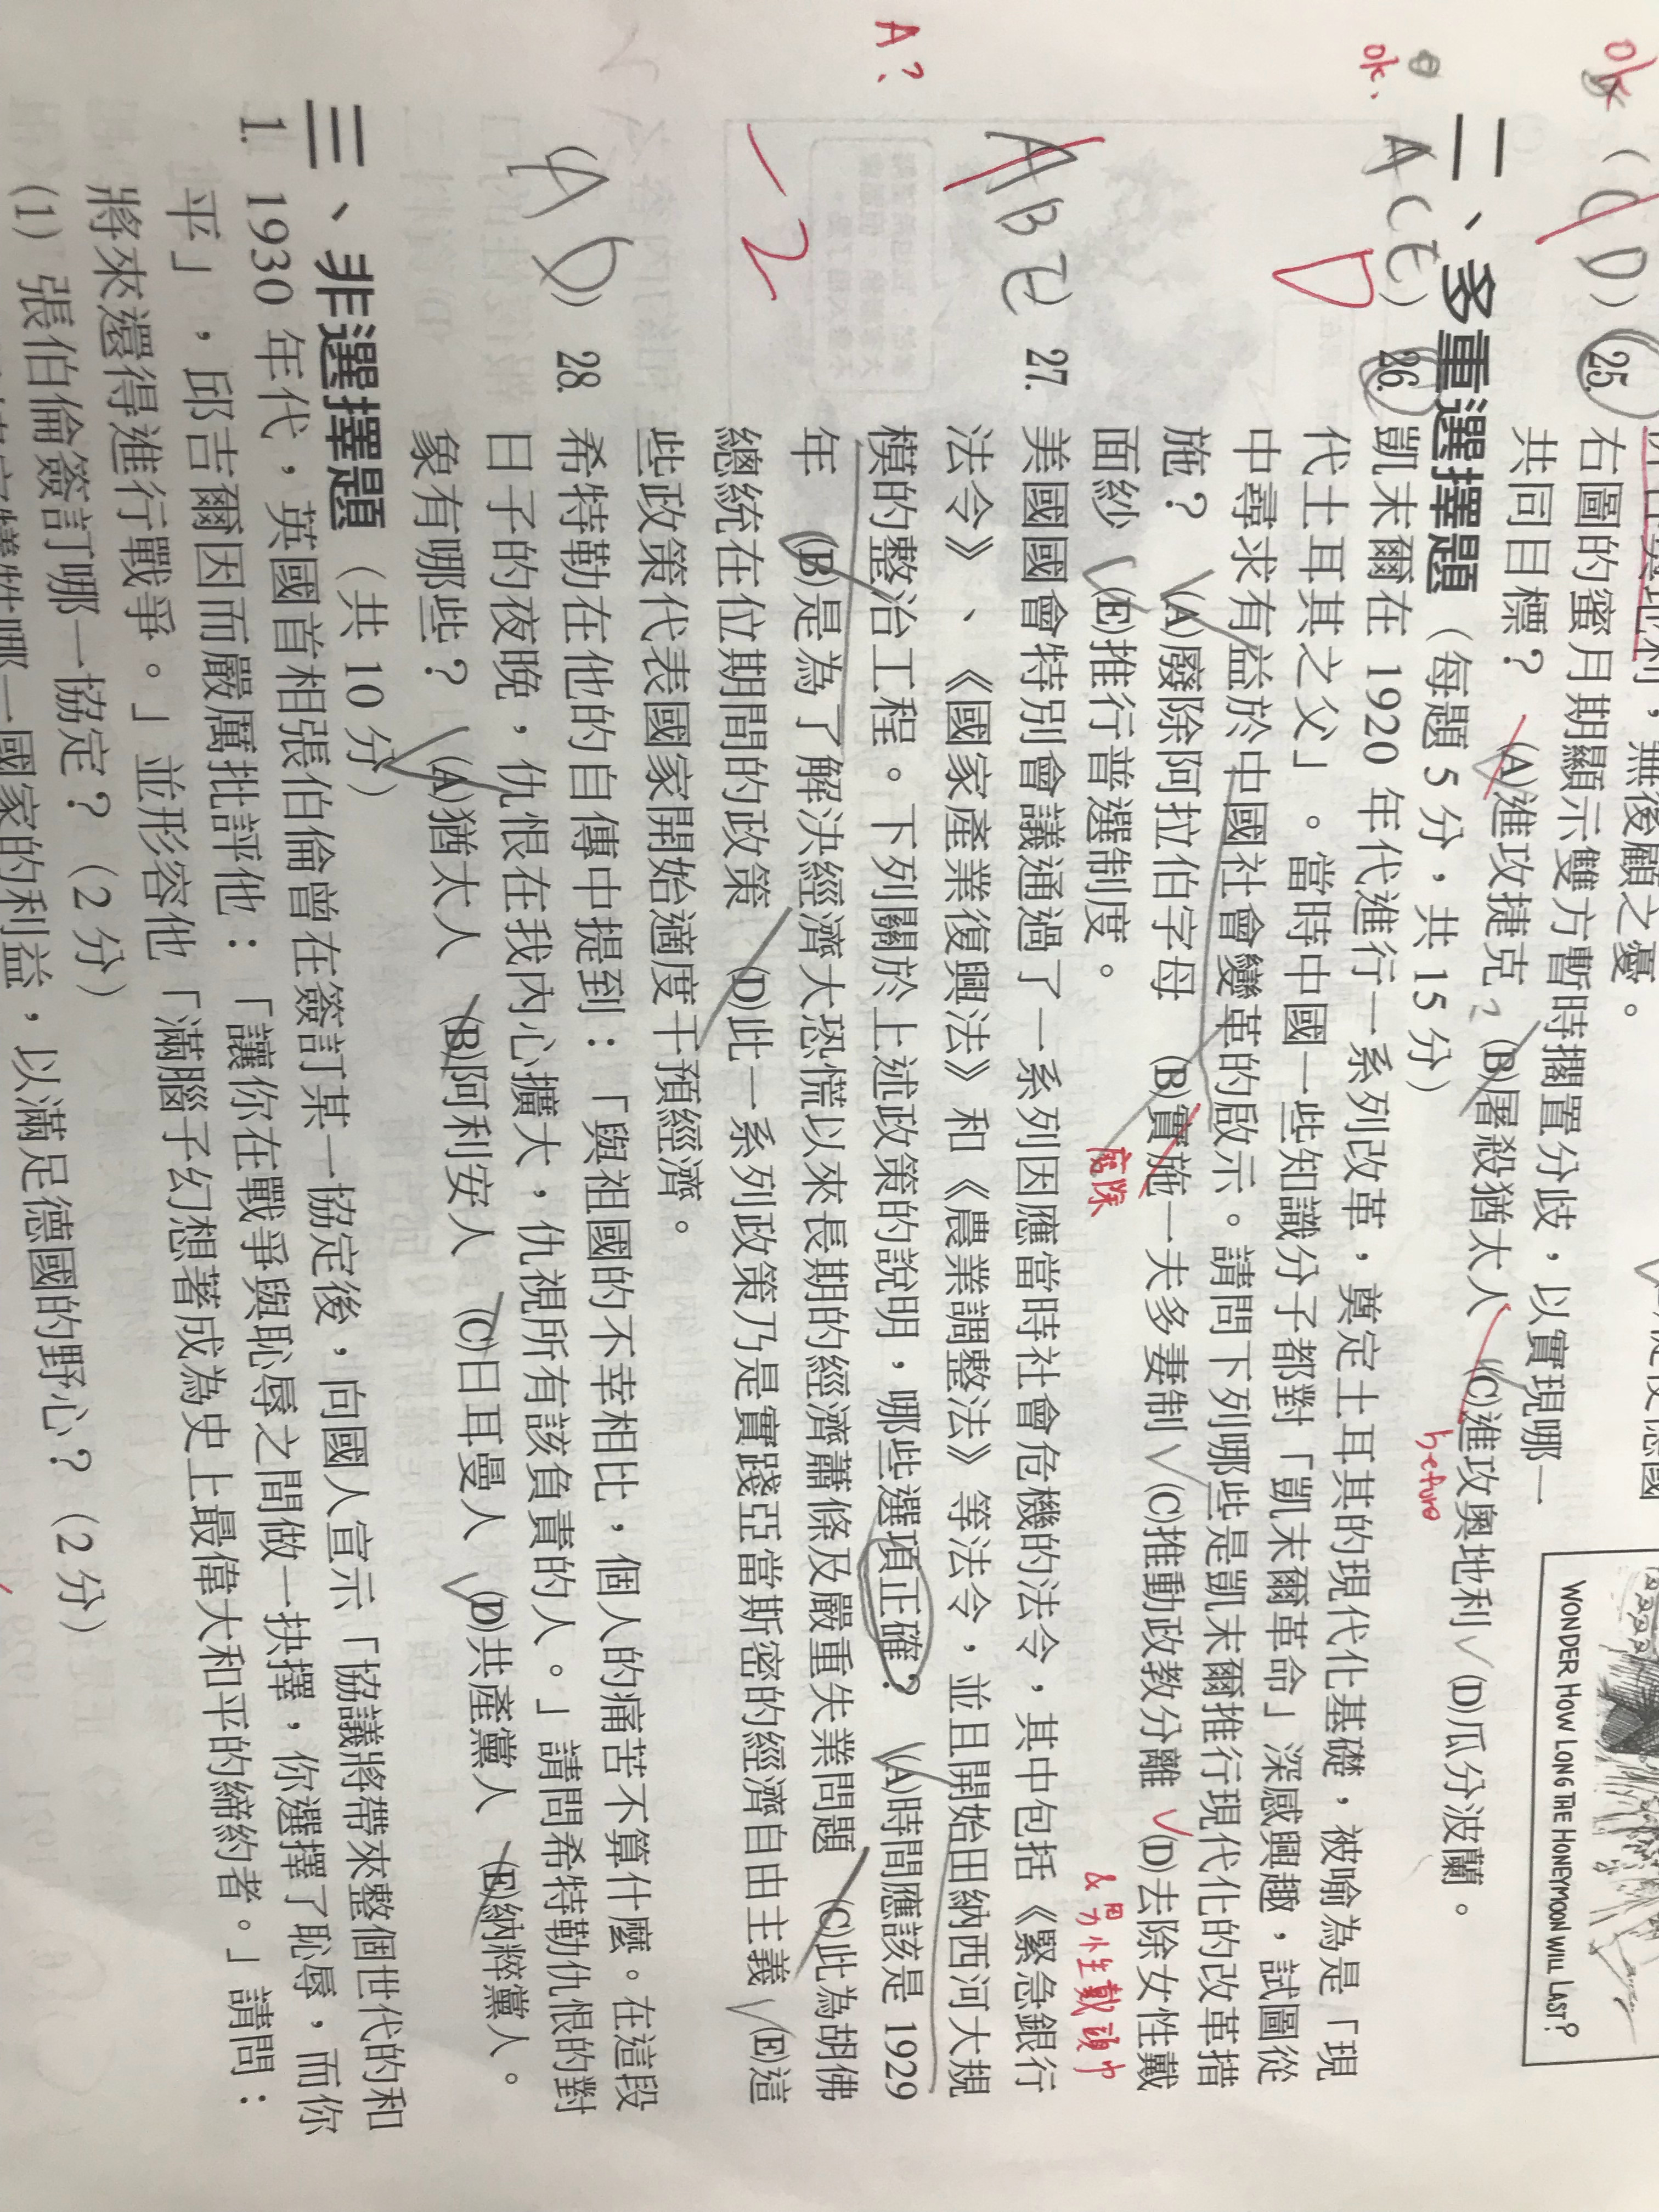 ，無後顧之憂。
ok (C D) 25. 右圖的蜜月期顯示雙方暫時擱置分歧，以實現哪一
共同目標？ (A)進攻捷克 ? (B)屠殺猶太人 (C)進攻奧地利 (D)瓜分波蘭。
before
WONDER HOW LONG THE HONEYMOON WILL LAST?
二、多重選擇題（每題 5 分，共 15 分）
ok、 (A C E) D 26. 凱末爾在 1920 年代進行一系列改革，奠定土耳其的現代化基礎，被喻為是「現
代土耳其之父」。當時中國一些知識分子都對「凱末爾革命」深感興趣，試圖從
中尋求有益於中國社會變革的啟示。請問下列哪些是凱末爾推行現代化的改革措
施？ (A)廢除阿拉伯字母 (B)實施一夫多妻制 (C)推動政教分離 (D)去除女性戴
廢除
面紗 (E)推行普選制度。
A B E) 27. 美國國會特別會議通過了一系列因應當時社會危機的法令，其中包括《緊急銀行
法令》、《國家產業復興法》和《農業調整法》等法令，並且開始田納西河大規
模的整治工程。下列關於上述政策的說明，哪些選項正確？ (A)時間應該是 1929
A？
年 (B)是為了解決經濟大恐慌以來長期的經濟蕭條及嚴重失業問題 (C)此為胡佛
-2
總統在位期間的政策 (D)此一系列政策乃是實踐亞當斯密的經濟自由主義 (E)這
些政策代表國家開始適度干預經濟。
(A D) 28. 希特勒在他的自傳中提到：「與祖國的不幸相比，個人的痛苦不算什麼。在這段
日子的夜晚，仇恨在我內心擴大，仇視所有該負責的人。」請問希特勒仇恨的對
象有哪些？ (A)猶太人 (B)阿利安人 (C)日耳曼人 (D)共產黨人 (E)納粹黨人。
三、非選擇題（共 10 分）
1. 1930 年代，英國首相張伯倫曾在簽訂某一協定後，向國人宣示「協議將帶來整個世代的和
平」，邱吉爾因而嚴厲批評他：「讓你在戰爭與恥辱之間做一抉擇，你選擇了恥辱，而你
將來還得進行戰爭。」並形容他「滿腦子幻想著成為史上最偉大和平的締約者。」請問：
(1) 張伯倫簽訂哪一協定？（2 分）
哪一國家的利益，以滿足德國的野心？（2 分）